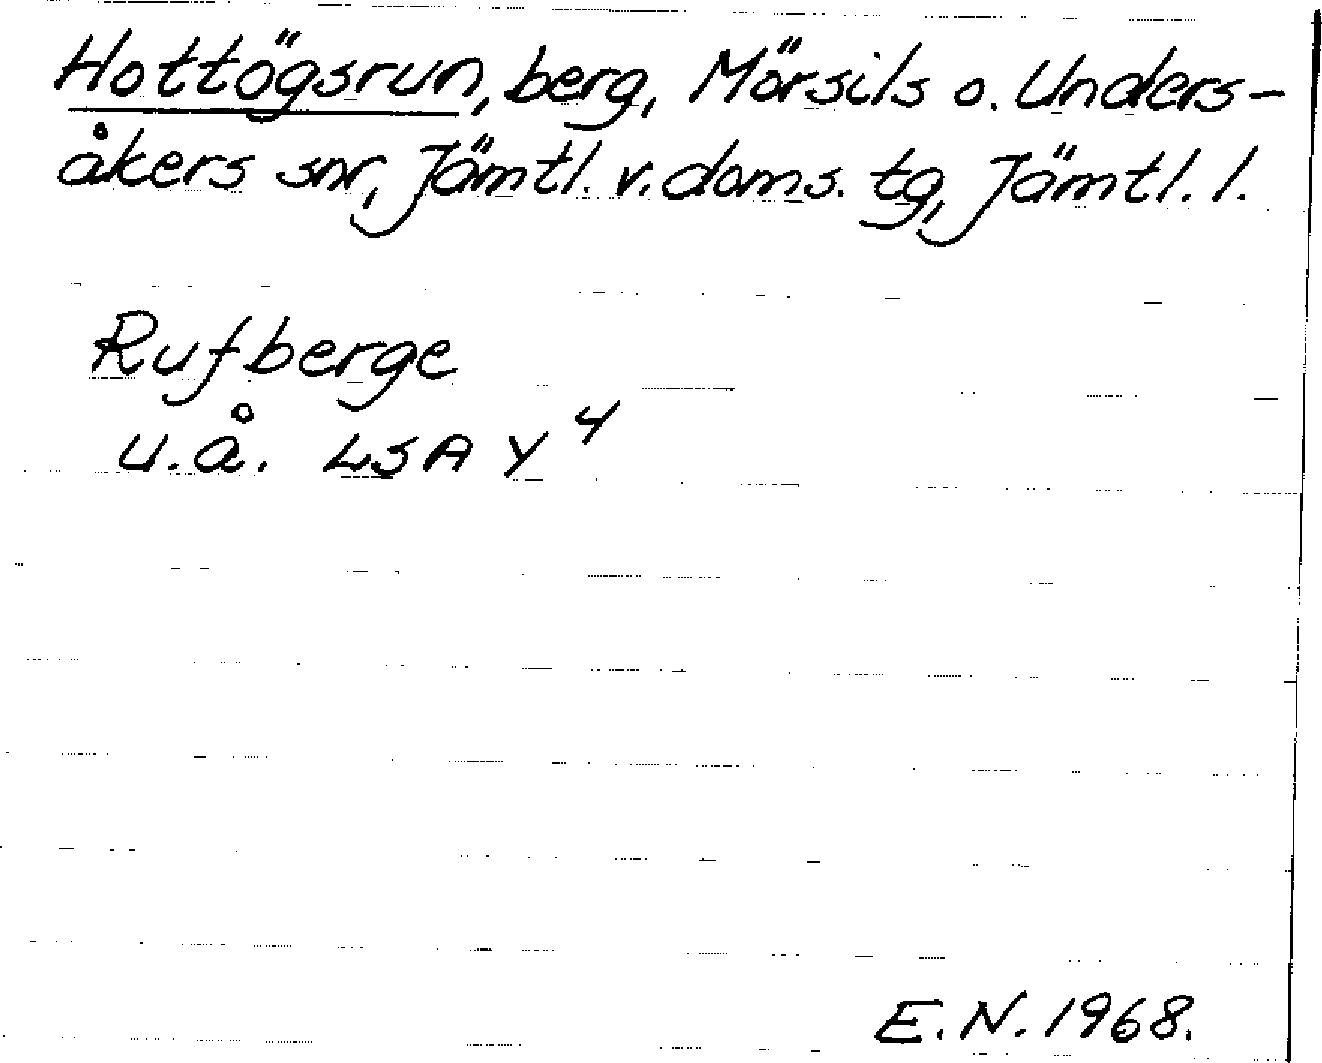 Hottögsrun, berg, Mörsils o. Unders-
åkers snr, Jämtl. v. doms. tg, Jämtl. l.
Rufberge
u.å. LSA Y 4
E.N. 1968.